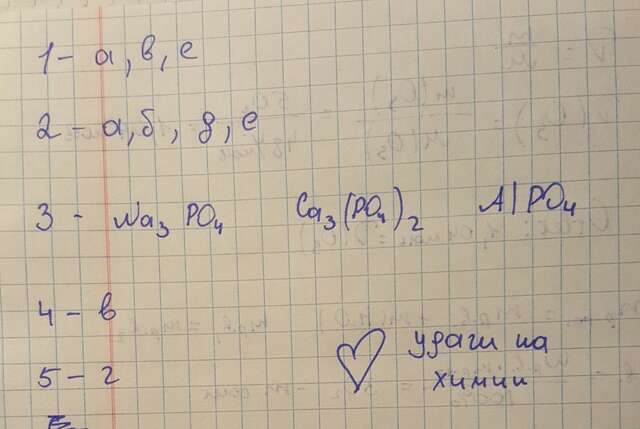 1 - а, в, е
2 - а, б, д, е
3 - Na₃PO₄ Ca₃(PO₄)₂ AlPO₄
4 - в
5 - г
удачи на
химии